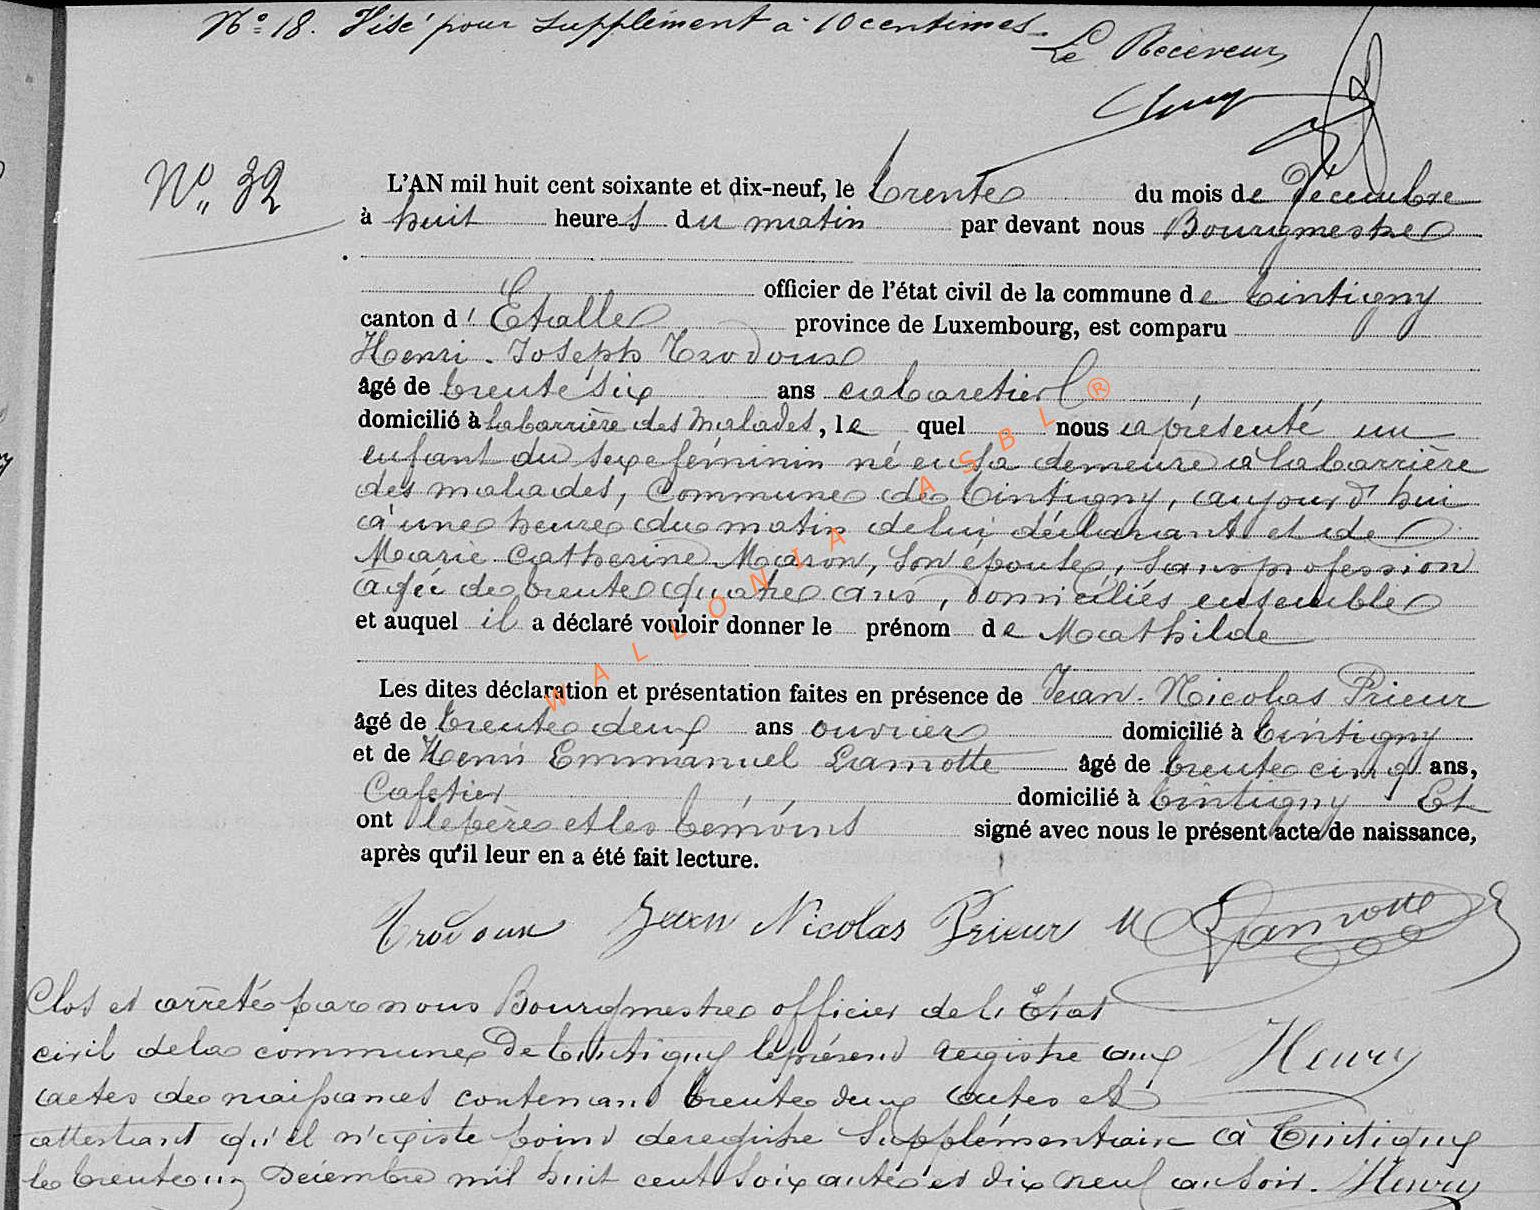 No 18. Visé pour supplément à 10 centimes.
Le Receveur
No 32
L'AN mil huit cent soixante et dix-neuf, le trente du mois de Décembre
à huit heures du matin par devant nous Bourgmestre
officier de l'état civil de la commune de Tintigny
canton d'Etalle province de Luxembourg, est comparu
Henri-Joseph Trodoux
âgé de trente six ans cabaretier
domicilié à la barrière des Malades, le quel nous a présenté un
enfant du sexe féminin né en sa demeure à la barrière
des malades, commune de Tintigny, aujourd'hui
à une heure du matin de lui déclarant et de
Marie Catherine Mason, son épouse, sans profession
agée de trente quatre ans, domiciliés ensemble
et auquel il a déclaré vouloir donner le prénom de Mathilde
Les dites déclaration et présentation faites en présence de Jean-Nicolas Prieur
âgé de trente deux ans ouvrier domicilié à Tintigny
et de Henri Emmanuel Lamotte âgé de trente cinq ans,
Cafetier domicilié à Tintigny Et
ont le père et les témoins signé avec nous le présent acte de naissance,
après qu'il leur en a été fait lecture.
Trodoux Jean Nicolas Prieur Lamotte
Clos et arrêté par nous Bourgmestre officier de l'Etat
civil de la commune de Tintigny le présent registre aux
Henry
actes de naissances contenant trente deux actes et
attestant qu'il n'existe point de registre supplémentaire à Tintigny
le trente un Décembre mil huit cent soixante et dix neuf au soir. Henry
WALLONIA ASBL ®